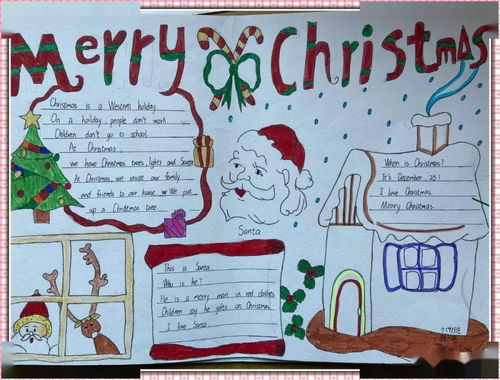 Merry Christmas
Christmas is a Western holiday.
On a holiday, people don't work.
Children don't go to school.
At Christmas,
we have Christmas trees, lights and Santa
At Christmas, we invite our family
and friends to our home. We put
up a Christmas tree.
Santa
When is Christmas?
It's December 25!
I love Christmas
Merry Christmas
This is Santa.
Who is he?
He is a merry man in red clothes
Children say he gifts on Christmas.
I love Santa